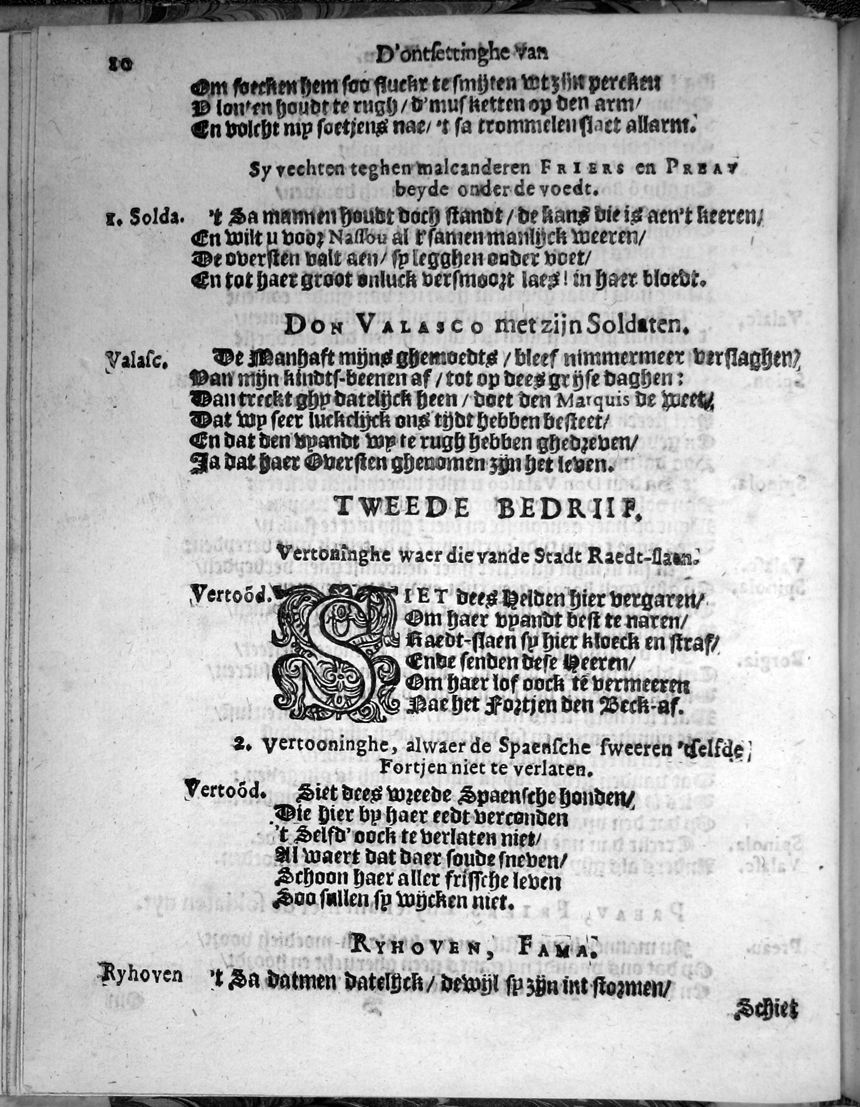 20 D'ontsettinghe van
Om soecken hem soo fluckr te smijten wt zijn percken
D lont'en houdt te rugh / d'musketten op den arm/
En volcht my soetjens nae/ 't sa trommelen slaet allarm.
Sy vechten teghen malcanderen FRIERS en PREAV
beyde onder de voedt.
1. Solda. 't Sa mannen houdt doch standt / de kans die is aen't keeren/
En wilt u voor Nassou al t'samen manlijck weeren/
De oversten valt aen/ sy legghen onder voet/
En tot haer groot onluck versmoort laes! in haer bloedt.
DON VALASCO met zijn Soldaten.
Valasc. De Manhaft mijns ghemoedts / bleef nimmermeer verslaghen/
Van mijn kindts-beenen af / tot op dees grijse daghen:
Dan treckt ghy datelijck heen / doet den Marquis de weet/
Dat wy seer luckelijck ons tijdt hebben besteet/
En dat den vyandt wy te rugh hebben ghedreven/
Ja dat haer Oversten ghenomen zijn het leven.
TWEEDE BEDRIIF.
Vertoninghe waer die vande Stadt Raedt-slaan.
Vertoõd. SIET dees Helden hier vergaren/
Om haer vyandt best te naren/
Raedt-slaen sy hier kloeck en straf/
Ende senden dese Heeren/
Om haer lof oock te vermeeren
Nae het Fortjen den Beck-af.
2. Vertooninghe, alwaer de Spaensche sweeren 'tselfde
Fortjen niet te verlaten.
Vertoõd. Siet dees wreede Spaensche honden/
Die hier by haer eedt verconden
't Selfd' oock te verlaten niet/
Al waert dat daer soude sneven/
Schoon haer aller frissche leven
Soo sullen sy wijcken niet.
RYHOVEN, FAMA.
Ryhoven 't Sa datmen datelijck / dewijl sy zijn int stormen/
Schiet